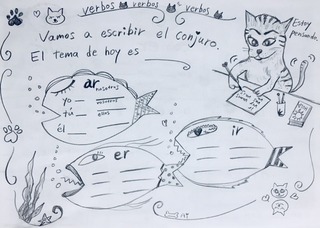 verbos verbos verbos
Vamos a escribir el conjuro.
El tema de hoy es
Estoy
pensando.
ar
yo nosotros
tú vosotros
él ellos
ir
er